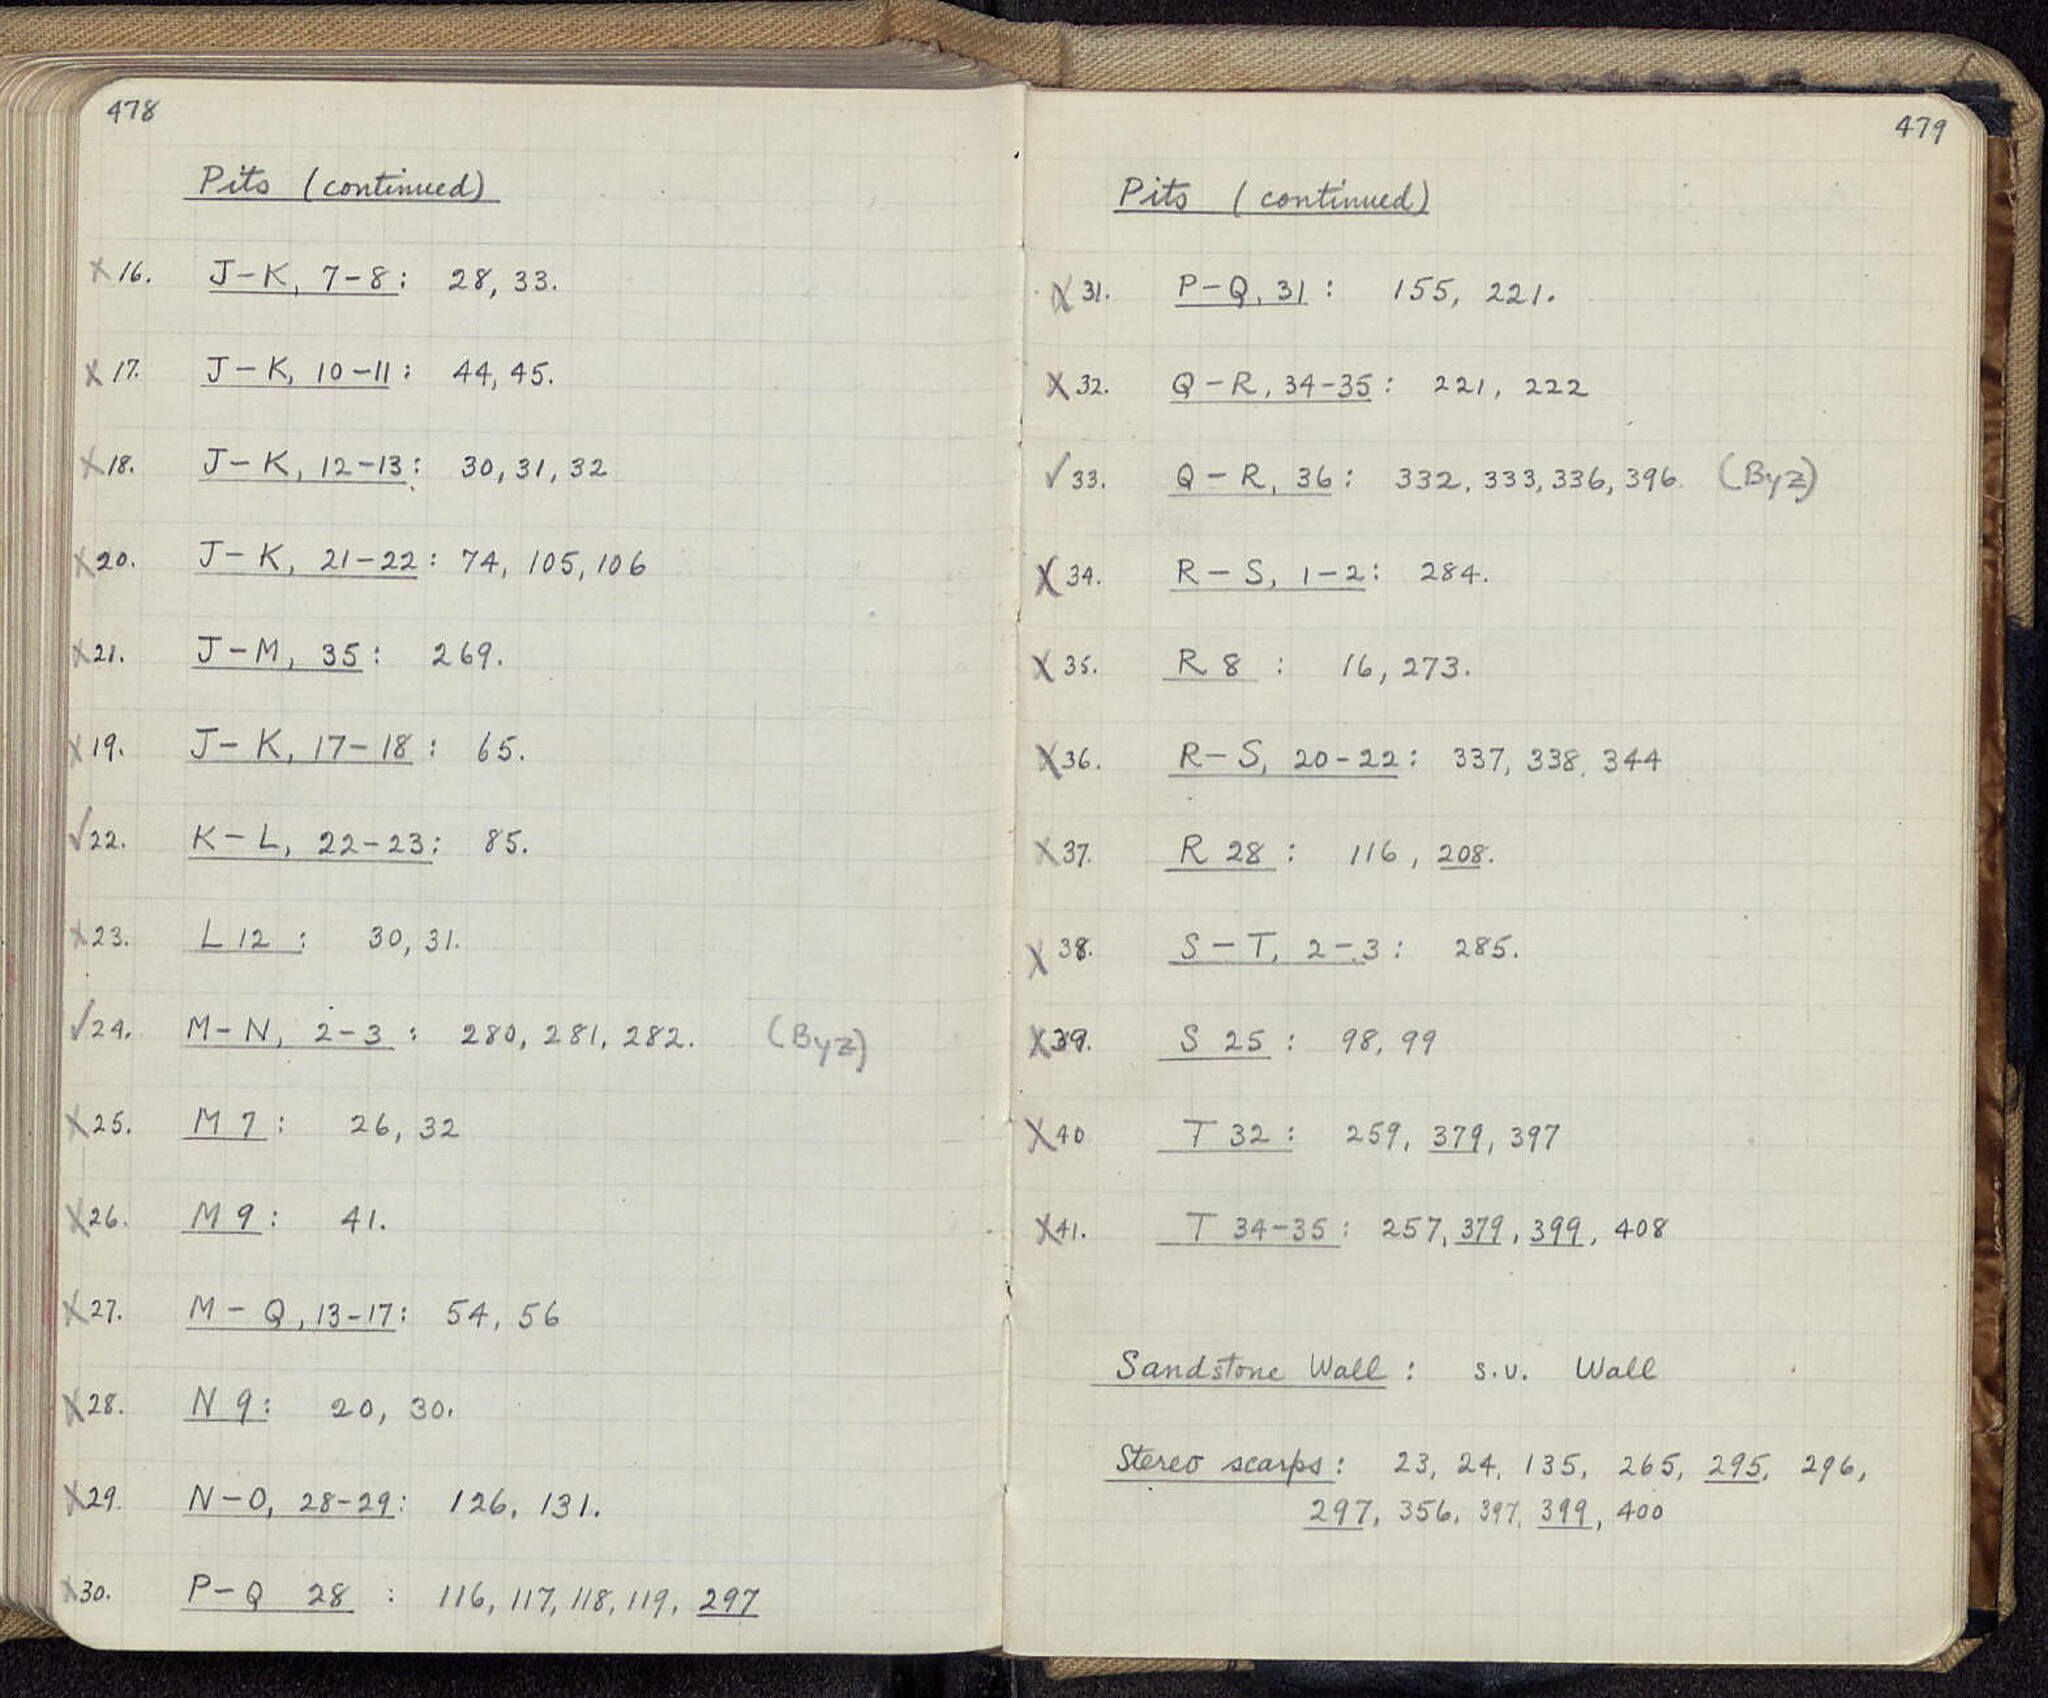 478
Pits (continued)
X 16. J-K, 7-8: 28, 33.
X 17. J-K, 10-11: 44, 45.
X 18. J-K, 12-13: 30, 31, 32
X 20. J-K, 21-22: 74, 105, 106
X 21. J-M, 35: 269.
X 19. J-K, 17-18: 65.
✓ 22. K-L, 22-23: 85.
X 23. L 12: 30, 31.
✓ 24. M-N, 2-3: 280, 281, 282. (Byz)
X 25. M 7: 26, 32
X 26. M 9: 41.
X 27. M-Q, 13-17: 54, 56
X 28. N 9: 20, 30.
X 29. N-O, 28-29: 126, 131.
X 30. P-Q 28: 116, 117, 118, 119, 297
479
Pits (continued)
X 31. P-Q, 31: 155, 221.
X 32. Q-R, 34-35: 221, 222
✓ 33. Q-R, 36: 332, 333, 336, 396. (Byz)
X 34. R-S, 1-2: 284.
X 35. R 8: 16, 273.
X 36. R-S, 20-22: 337, 338, 344
X 37. R 28: 116, 208.
X 38. S-T, 2-3: 285.
X 39. S 25: 98, 99
X 40 T 32: 259, 379, 397
X 41. T 34-35: 257, 379, 399, 408
Sandstone Wall: s.v. Wall
Stereo scarps: 23, 24, 135, 265, 295, 296,
297, 356, 397, 399, 400